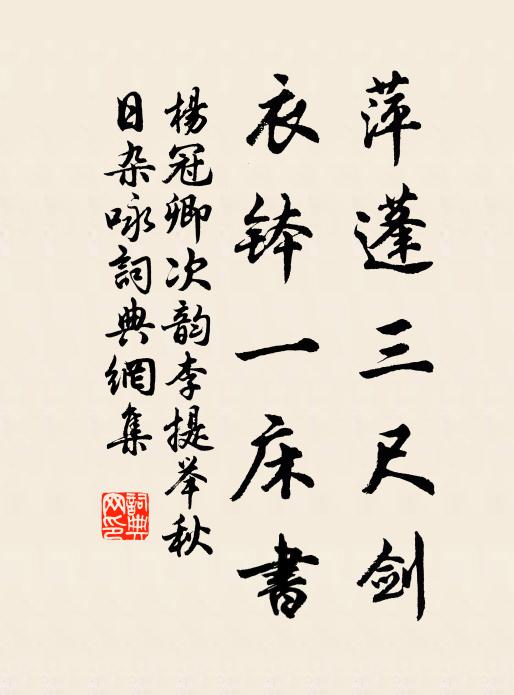 萍蓬三尺剑
衣钵一床書
楊冠卿次韵李提举秋
日杂咏詞典網集
詞典网印